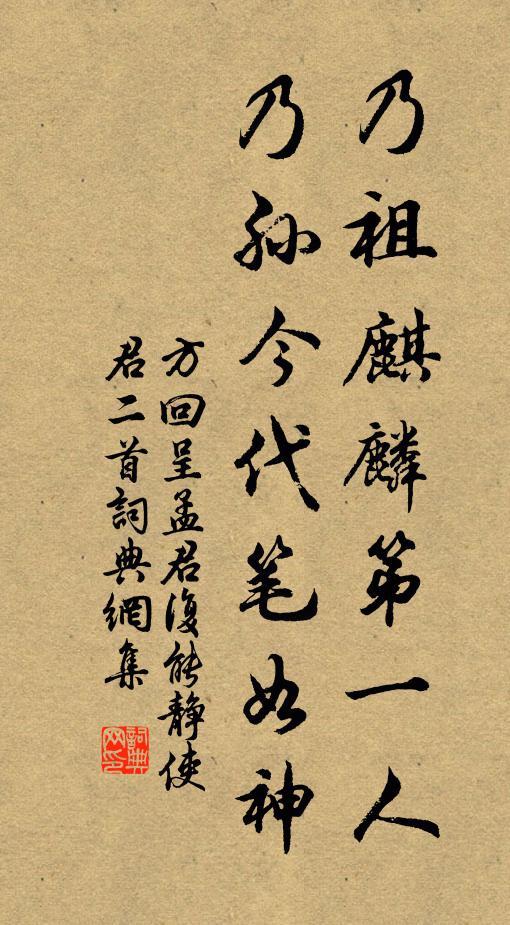 乃祖麒麟第一人
乃孙今代笔如神
方回呈孟君復能静使
君二首詞典網集
詞典
网印